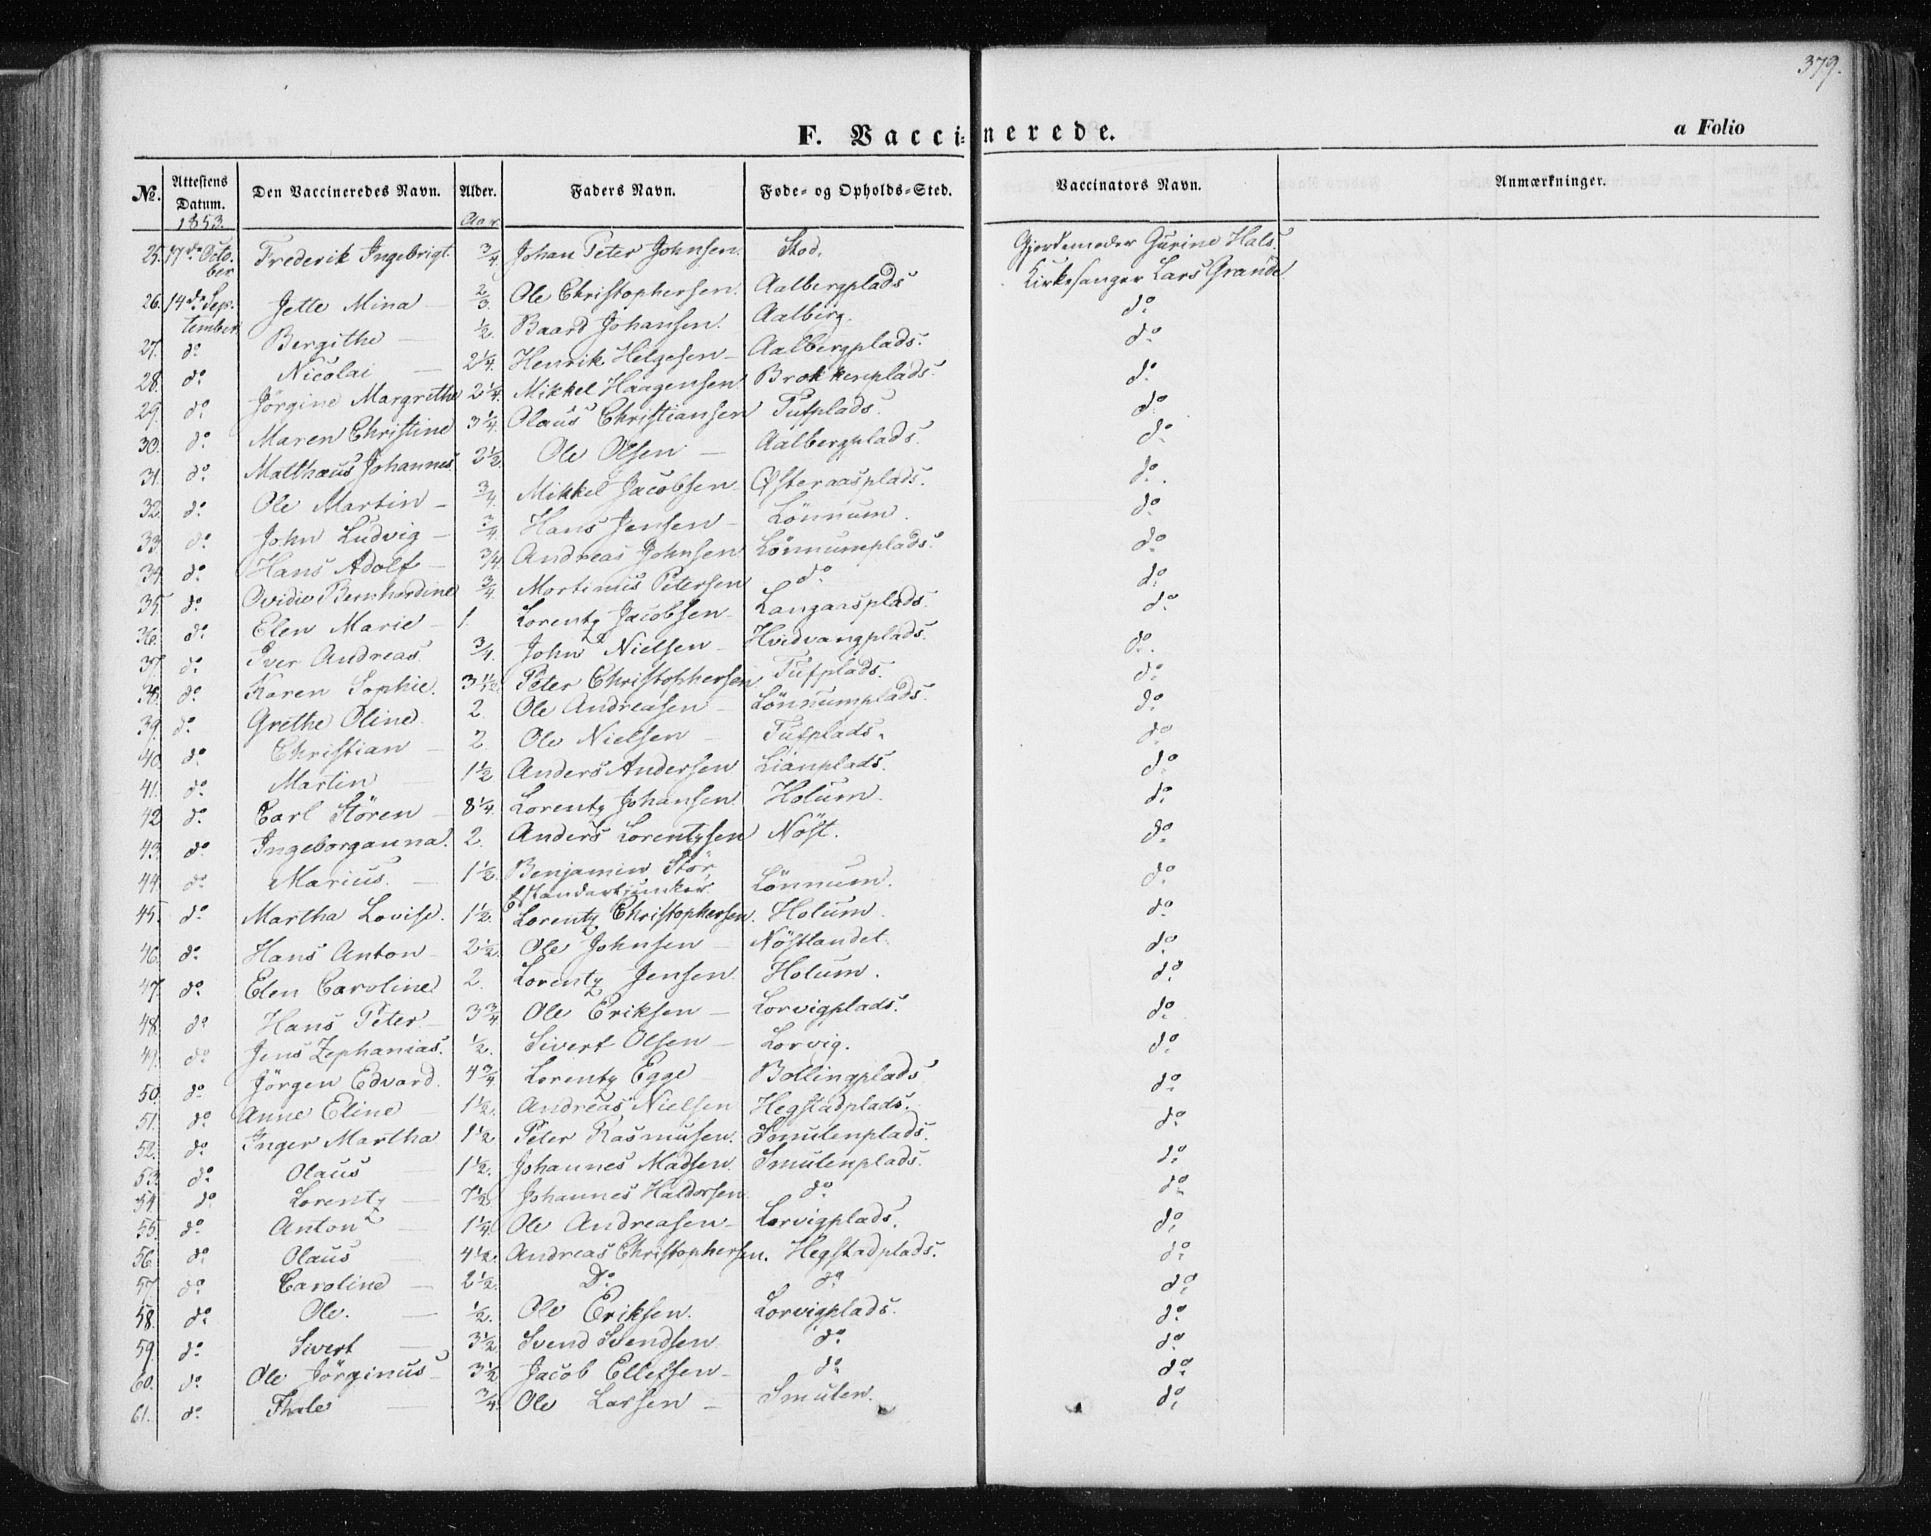 379.
F. Vaccinerede.
a Folio
No. Attestens Datum. Den Vaccineredes Navn. Alder. Faders Navn. Føde- og Opholds-Sted. Vaccinators Navn. Anmærkninger.
1853. Aar
25. 17de Octo- Frederik Ingebrigt. 3/4 Johan Peter Johnsen. Stod. Gjordemoder Gurine Hals.
ber
26. 14de Sep- Jette Mina — 2/3. Ole Christophersen. Aalbergplads Kirkesanger Lars Grande
tember
27. do Bergithe — 1/2. Baard Johansen. Aalberg. do
28. do Nicolai — 2 1/4. Henrik Helgesen — Aalbergplads. do
29. do Jörgine Margrethe 2 1/4. Mikkel Haagensen Brokkenplads. do
30. do Maren Christine 3 1/4. Olaus Christiansen Tufplads. do
31. do Matthæus Johannes 2 1/2. Ole Olsen — Aalbergplads. do
32. do Ole Martin — 3/4. Mikkel Jacobsen Østeraasplads. do.
33. do John Ludvig — 3/4 Hans Jensen — Lönnum. do
34. do Hans Adolf — 3/4 Andreas Johnsen Lönnumplads. do
35. do Ovidie Bernhardine 3/4. Mortinus Petersen do. do
36. do Elen Marie — 1. Lorentz Jacobsen — Langaasplads. do
37. do Iver Andreas. 3/4. John Nielsen — Hvidvangplads. do.
38. do Karen Sophie. 3 1/2. Peter Christophersen Tufplads. do
39. do Grethe Oline. 2. Ole Andreasen — Lönnumplads. do
40. do Christian — 2. Ole Nielsen — Tufplads. do
41. do Martin — 1 1/2 Anders Andersen Lianplads. do
42 do Carl Stören — 8 1/4. Lorentz Johansen Holum. do
43. do Ingeborganna. 2. Anders Lorentzsen Nöst. do
44. do Marius. — 1 1/2. Benjamin Stör, Lönnum. do
Standartjunker
45. do Martha Lovise. 1 1/2. Lorentz Christophersen. Holum. do
46. do Hans Anton — 2 1/2. Ole Johnsen — Nöstlandet. do
47. do Elen Caroline 2. Lorentz Jensen. Holum. do
48. do Hans Peter — 3 3/4 Ole Eriksen — Lorvigplads. do
49. do Jens Zephanias. 1/2. Sivert Olsen — Lorvig. do
50. do Jörgen Edvard. 4 3/4 Lorentz Egge Bollingplads do
51. do Anne Eline — 1 1/2. Andreas Nielsen Hegstadplads. do
52. do Inger Martha 1 1/2 Peter Rasmusen. Smulenplads. do
53. do Olaus — 1 1/2. Johannes Madsen. Smulenplads. do
54. do Lorentz — 7 1/2 Johannes Haldorsen do do
55. do Anton — 1 1/4 Ole Andreasen — Lorvigplads. do
56. do Olaus — 4 1/2. Andreas Christophersen. Hegstadplads. do
57. do Caroline — 2 1/2. Do. do do
58. do Ole. — 1/2. Ole Eriksen. Lorvigplads. do
59. do Sivert — 3 1/2. Svend Svendsen do do
60. do Ole Jörginus — 3 1/2 Jacob Ellefsen — do do
61. do Thale — 3/4. Ole Larsen — Smulen. do